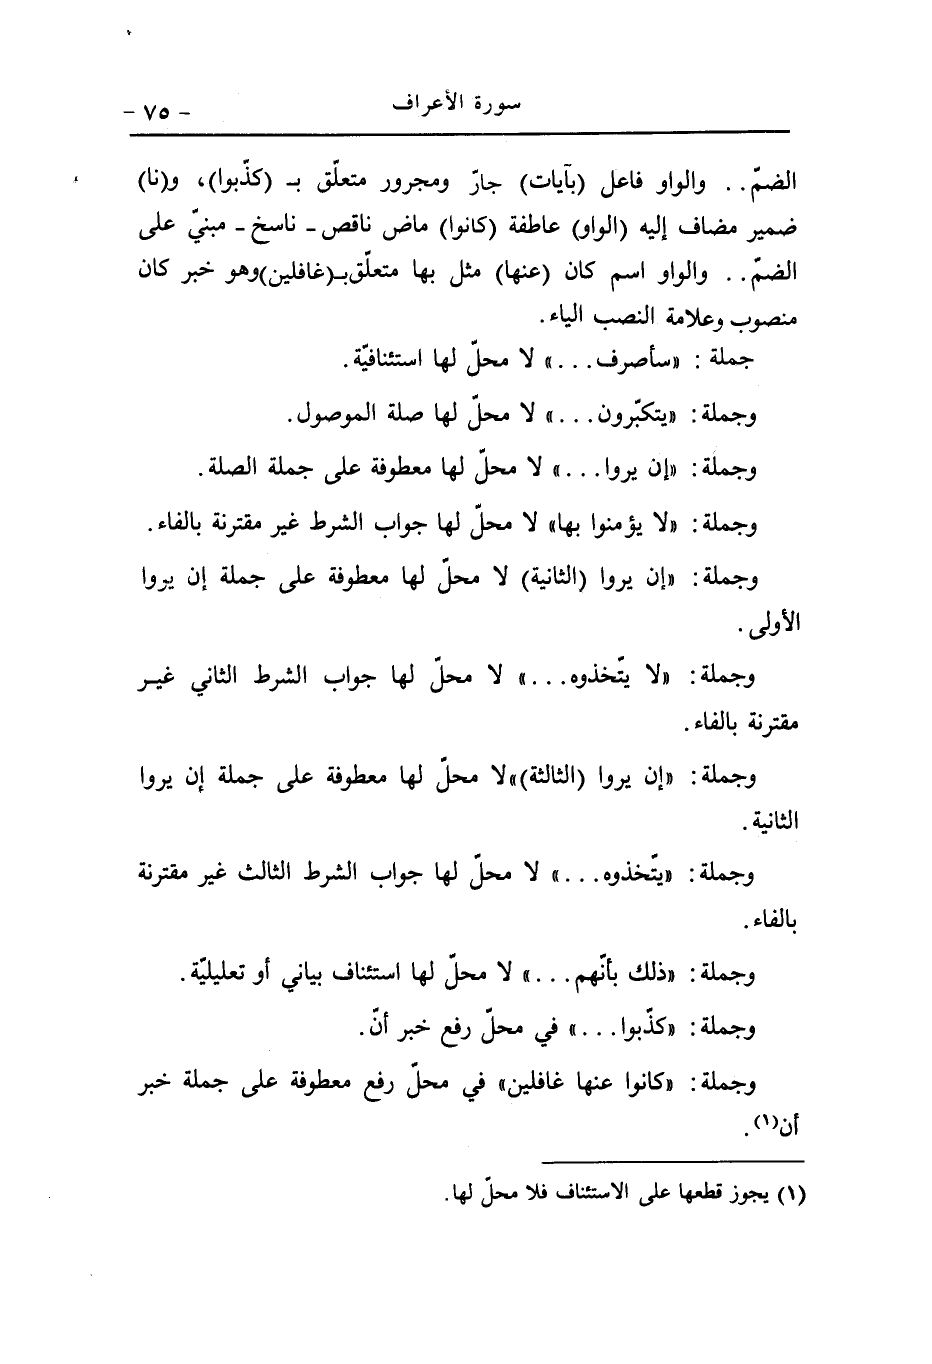 سورة الأعراف
- ٧٥ -
الضمّ. . والواو فاعل (بآيات) جارّ ومجرور متعلّق بـ (كذّبوا)، و(نا)
ضمير مضاف إليه (الواو) عاطفة (كانوا) ماض ناقص - ناسخ - مبنيّ على
الضمّ. . والواو اسم كان (عنها) مثل بها متعلّق بـ(غافلين)وهو خبر كان
منصوب وعلامة النصب الياء.
جملة: «سأصرف. . .» لا محلّ لها استئنافيّة.
وجملة: «يتكبّرون. . .» لا محلّ لها صلة الموصول.
وجملة: «إن يروا. . .» لا محلّ لها معطوفة على جملة الصلة.
وجملة: «لا يؤمنوا بها» لا محلّ لها جواب الشرط غير مقترنة بالفاء.
وجملة: «إن يروا (الثانية) لا محلّ لها معطوفة على جملة إن يروا
الأولى.
وجملة: «لا يتّخذوه. . .» لا محلّ لها جواب الشرط الثاني غيـر
مقترنة بالفاء.
وجملة: «إن يروا (الثالثة)»لا محلّ لها معطوفة على جملة إن يروا
الثانية.
وجملة: «يتّخذوه. . .» لا محلّ لها جواب الشرط الثالث غير مقترنة
بالفاء.
وجملة: «ذلك بأنّهم. . .» لا محلّ لها استئناف بياني أو تعليليّة.
وجملة: «كذّبوا. . .» في محلّ رفع خبر أنّ.
وجملة: «كانوا عنها غافلين» في محلّ رفع معطوفة على جملة خبر
أن(١).
(١) يجوز قطعها على الاستئناف فلا محلّ لها.